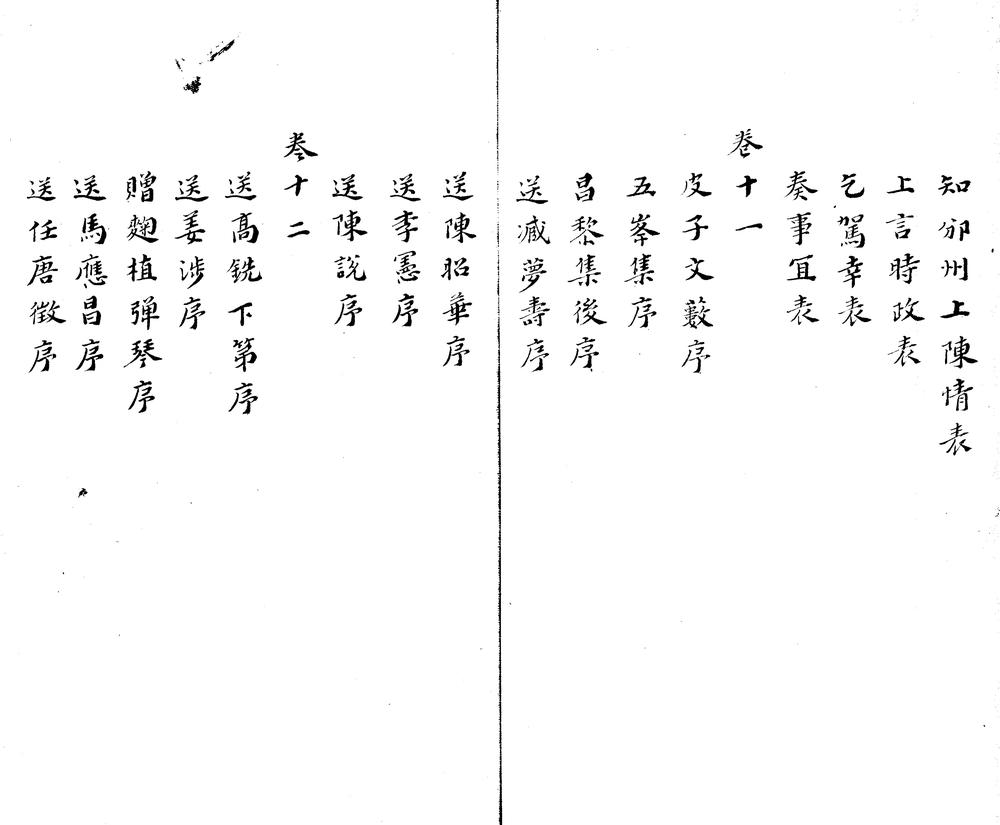 知邠州上陳情表
上言時政表
乞駕幸表
奏事宜表
卷十一
皮子文藪序
五峯集序
昌黎集後序
送臧夢壽序
送陳昭華序
送李憲序
送陳說序
卷十二
送高銑下第序
送姜涉序
贈麴植弾琴序
送馬應昌序
送任唐徵序